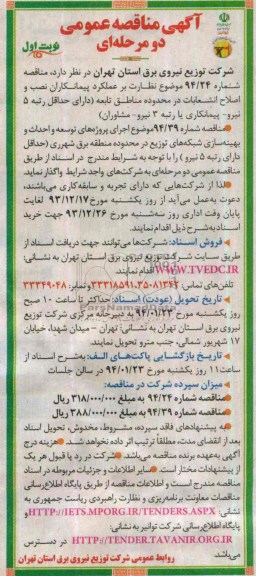 آگهی مناقصه عمومی
دو مرحله‌ای
نوبت اول
شرکت توزیع نیروی برق استان تهران در نظر دارد، مناقصه
شماره ۹۴/۲۴ موضوع نظارت بر عملکرد پیمانکاران نصب و
اصلاح انشعابات در محدوده مناطق تابعه (دارای حداقل رتبه ۵
نیرو- پیمانکاری یا رتبه ۳ نیرو- مشاوران)
مناقصه شماره ۹۴/۳۹ موضوع اجرای پروژه‌های توسعه و احداث و
بهینه‌سازی شبکه‌های توزیع در محدوده منطقه برق شهرری (حداقل
دارای رتبه ۵ نیرو) را با توجه به شرایط مندرج در اسناد از طریق
مناقصه عمومی دو مرحله‌ای به شرکت‌های واجد شرایط واگذار نماید.
لذا از شرکت‌هایی که دارای تجربه و سابقه کاری می‌باشند،
دعوت به‌عمل می‌آید از روز یکشنبه مورخ ۹۳/۱۲/۱۷ لغایت
پایان وقت اداری روز سه‌شنبه مورخ ۹۳/۱۲/۲۶ جهت خرید
اسناد به‌شرح ذیل اقدام نمایند.
فروش اسناد: شرکت‌ها می‌توانند جهت دریافت اسناد از
طریق سایت شرکت توزیع نیروی برق استان تهران به نشانی:
WWW.TVEDC.IR اقدام نمایند.
تلفن‌های تماس: ۳۵۰۸۱۳۴۲-۳۳۳۱۸۵۹۱ و نمابر: ۳۳۳۴۹۰۴۸
تاریخ تحویل (عودت) اسناد: حداکثر تا ساعت ۱۰ صبح
روز یکشنبه مورخ ۹۴/۰۱/۲۳ به دبیرخانه مرکزی شرکت توزیع
نیروی برق استان تهران به نشانی: تهران - میدان شهدا، خیابان
۱۷ شهریور شمالی، جنب مترو تحویل نمایند.
تاریخ بازگشایی پاکت‌های الف: به‌شرح اسناد از
ساعت ۱۱ روز یکشنبه مورخ ۹۴/۰۱/۲۳ در سالن جلسات
میزان سپرده شرکت در مناقصه:
مناقصه شماره ۹۴/۲۴ به مبلغ ۳۱۸/۰۰۰/۰۰۰ ریال
مناقصه شماره ۹۴/۳۹ به مبلغ ۳۸۸/۰۰۰/۰۰۰ ریال
به پیشنهادهای فاقد سپرده، مشروط، مخدوش، تحویل اسناد
بعد از انقضای مدت، مطلقاً ترتیب اثر داده نخواهد شد. هزینه درج
آگهی به‌عهده برنده مناقصه می‌باشد. شرکت در رد یا قبول هر یک
از پیشنهادات مختار است. سایر اطلاعات و جزئیات مربوطه در اسناد
مناقصه مندرج است و اطلاعات مناقصه از طریق پایگاه اطلاع‌رسانی
مناقصات معاونت برنامه‌ریزی و نظارت راهبردی ریاست جمهوری به
نشانی: HTTP://IETS.MPORG.IR/TENDERS.ASPX و
پایگاه اطلاع‌رسانی شرکت توانیر به نشانی:
HTTP://TENDER.TAVANIR.ORG.IR در دسترس
می‌باشد.
روابط عمومی شرکت توزیع نیروی برق استان تهران